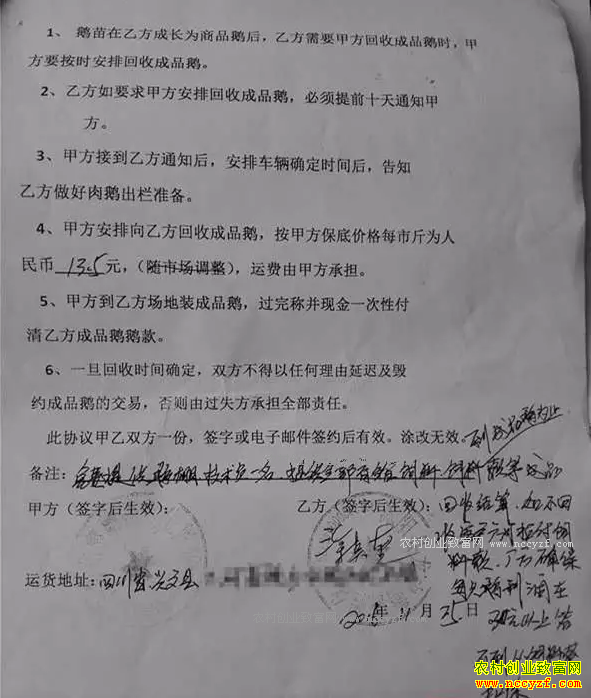 1、 鹅苗在乙方成长为商品鹅后，乙方需要甲方回收成品鹅时，甲
方要按时安排回收成品鹅。
2、乙方如要求甲方安排回收成品鹅，必须提前十天通知甲
方。
3、甲方接到乙方通知后，安排车辆确定时间后，告知
乙方做好肉鹅出栏准备。
4、甲方安排向乙方回收成品鹅，按甲方保底价格每市斤为人
民币 13.5 元，（随市场调整），运费由甲方承担。
5、甲方到乙方场地装成品鹅，过完称并现金一次性付
清乙方成品鹅鹅款。
6、一旦回收时间确定，双方不得以任何理由延迟及毁
约成品鹅的交易，否则由过失方承担全部责任。
此协议甲乙双方一份，签字或电子邮件签约后有效。涂改无效。
备注：技术员一名
甲方（签字后生效）：
乙方（签字后生效）：
回收结算，如不回
确保
每只鹅利润在
运货地址：四川省兴文县
年 11 月 25 日
农村创业致富网
www.nccyzf.com
农村创业致富网
www.nccyzf.com